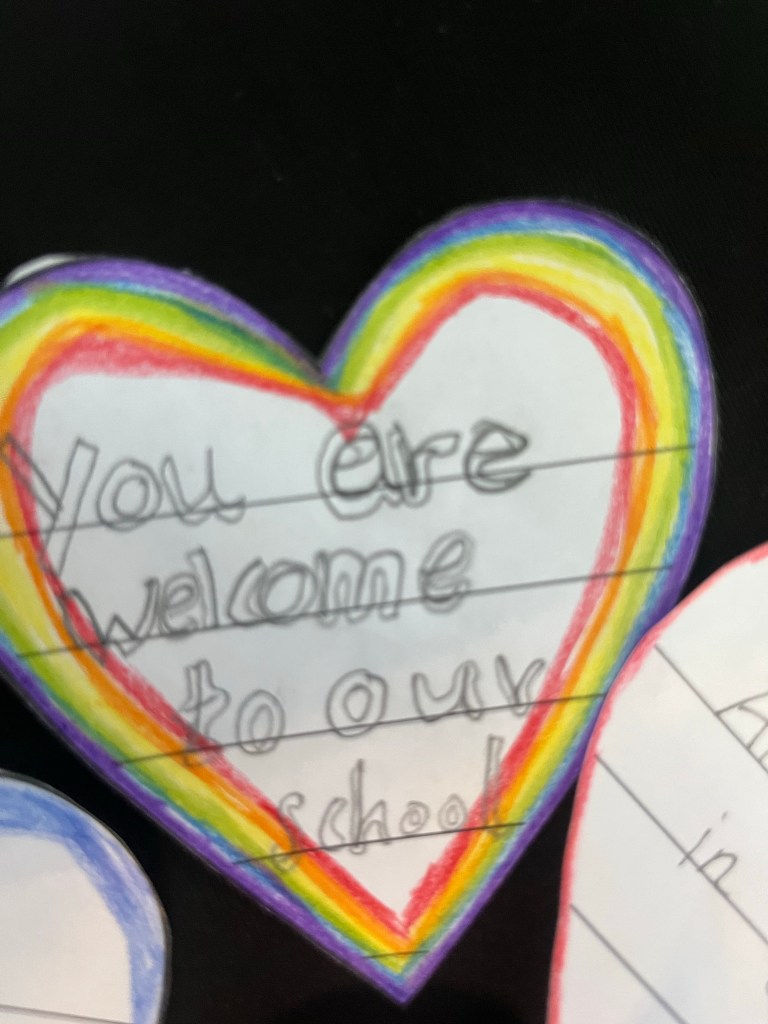 You are
welcome
to our
school
in